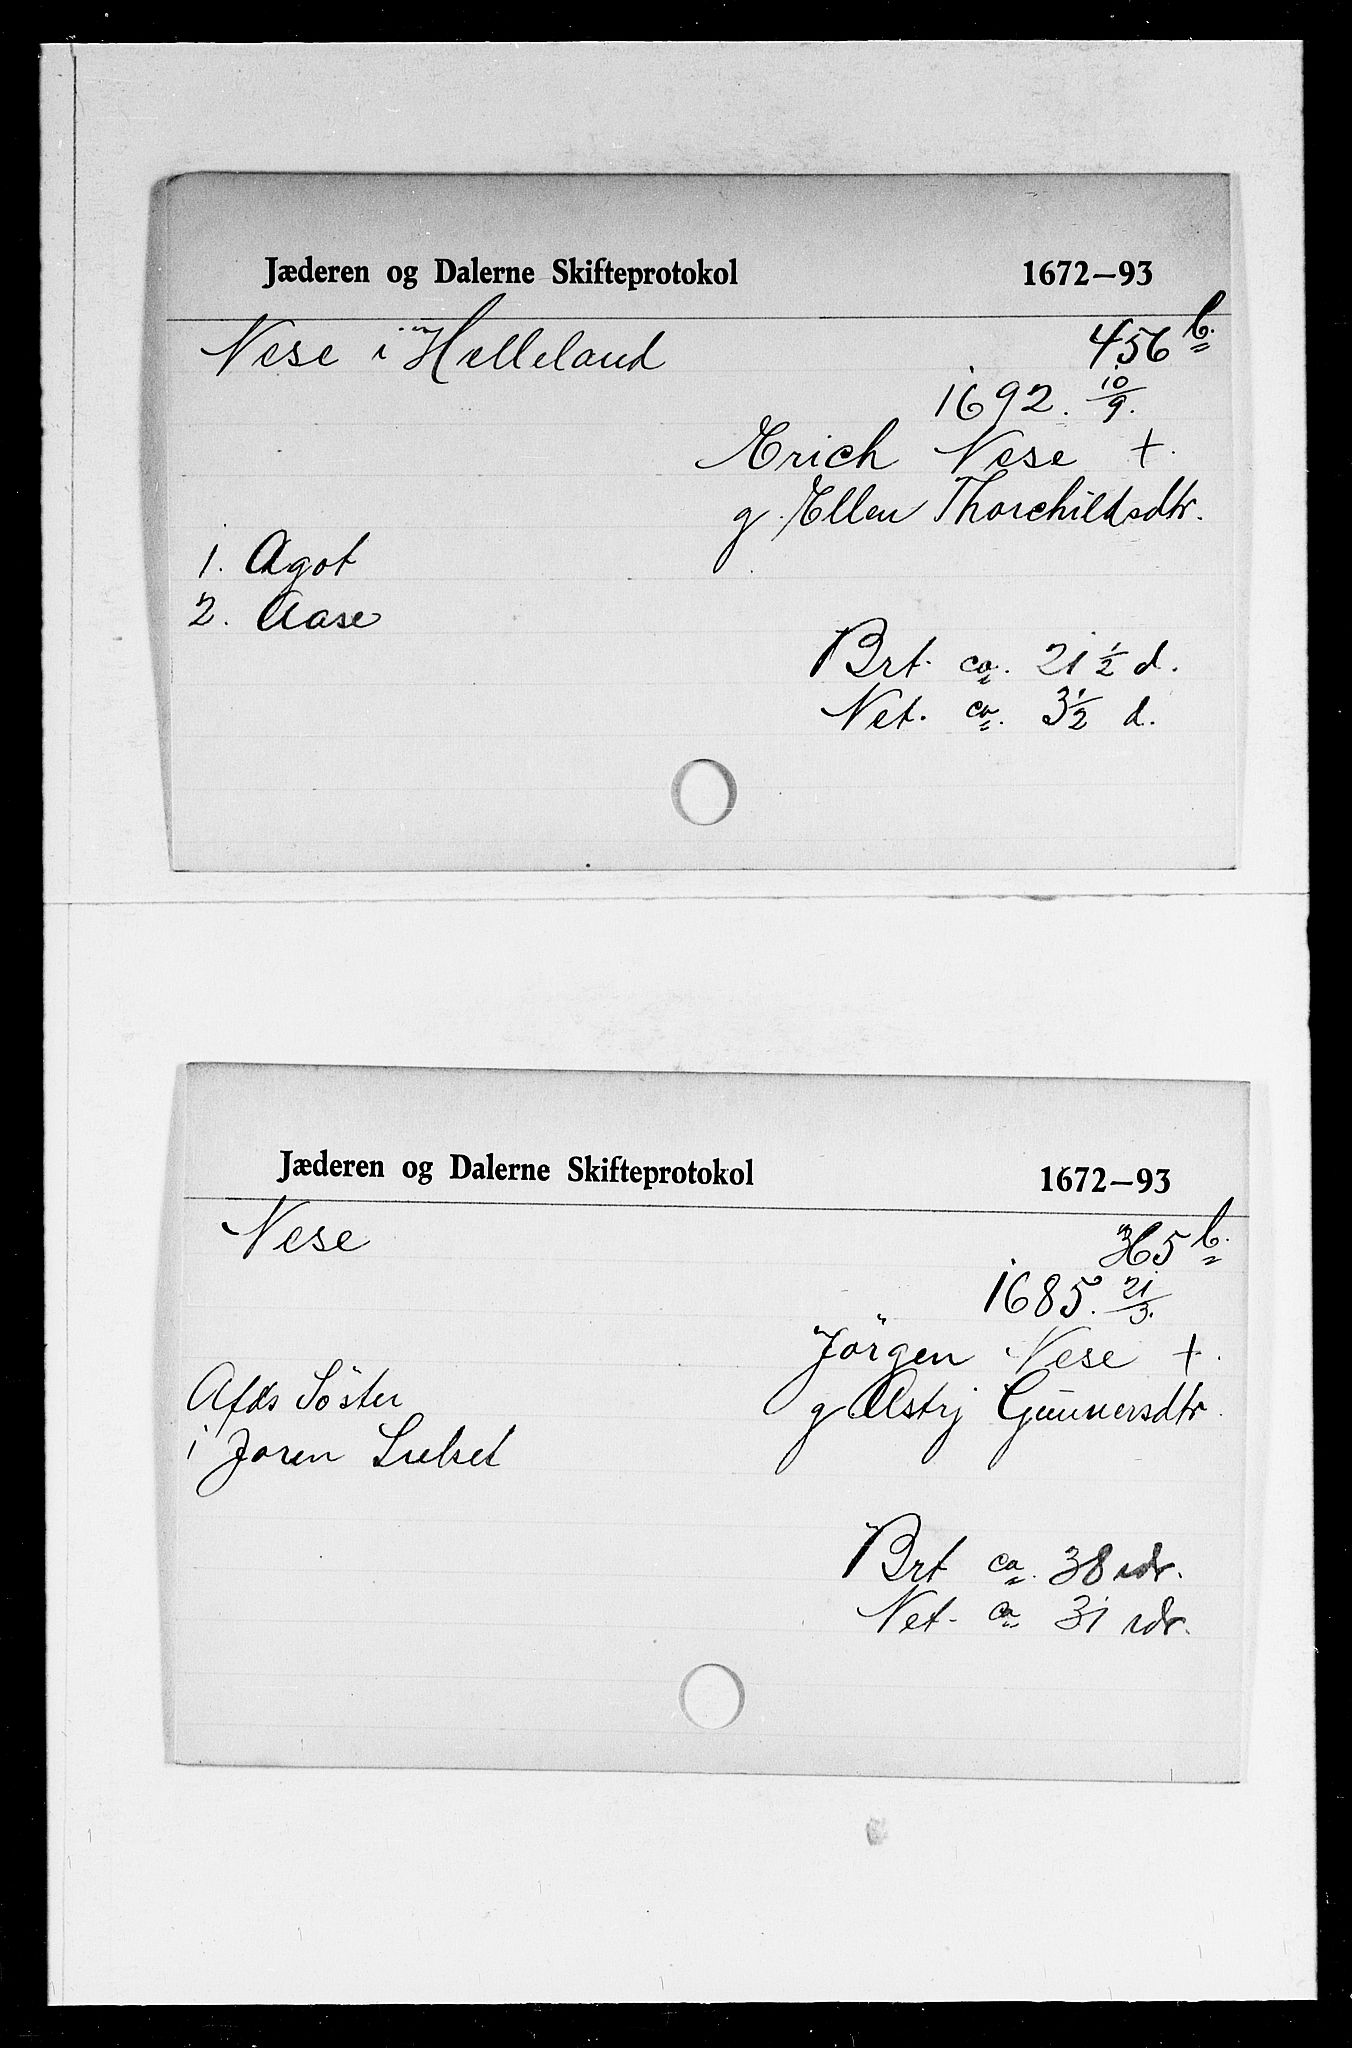 Jæderen og Dalerne Skifteprotokol 1672–93
Nese i Helleland 456 b.
1692. 10/9.
Erich Nese +.
g. Ellen Thorchildsdtr.
1. Agot
2. Aase
Brt. ca. 21 1/2 d.
Net. ca. 3 1/2 d.
Jæderen og Dalerne Skifteprotokol 1672–93
Nese 365 b.
1685. 21/3.
Jörgen Nese +.
g Astrj Gunnersdtr.
Afds Söster
i Joren
Brt ca. 38 rdr.
Net. ca 31 rdr.